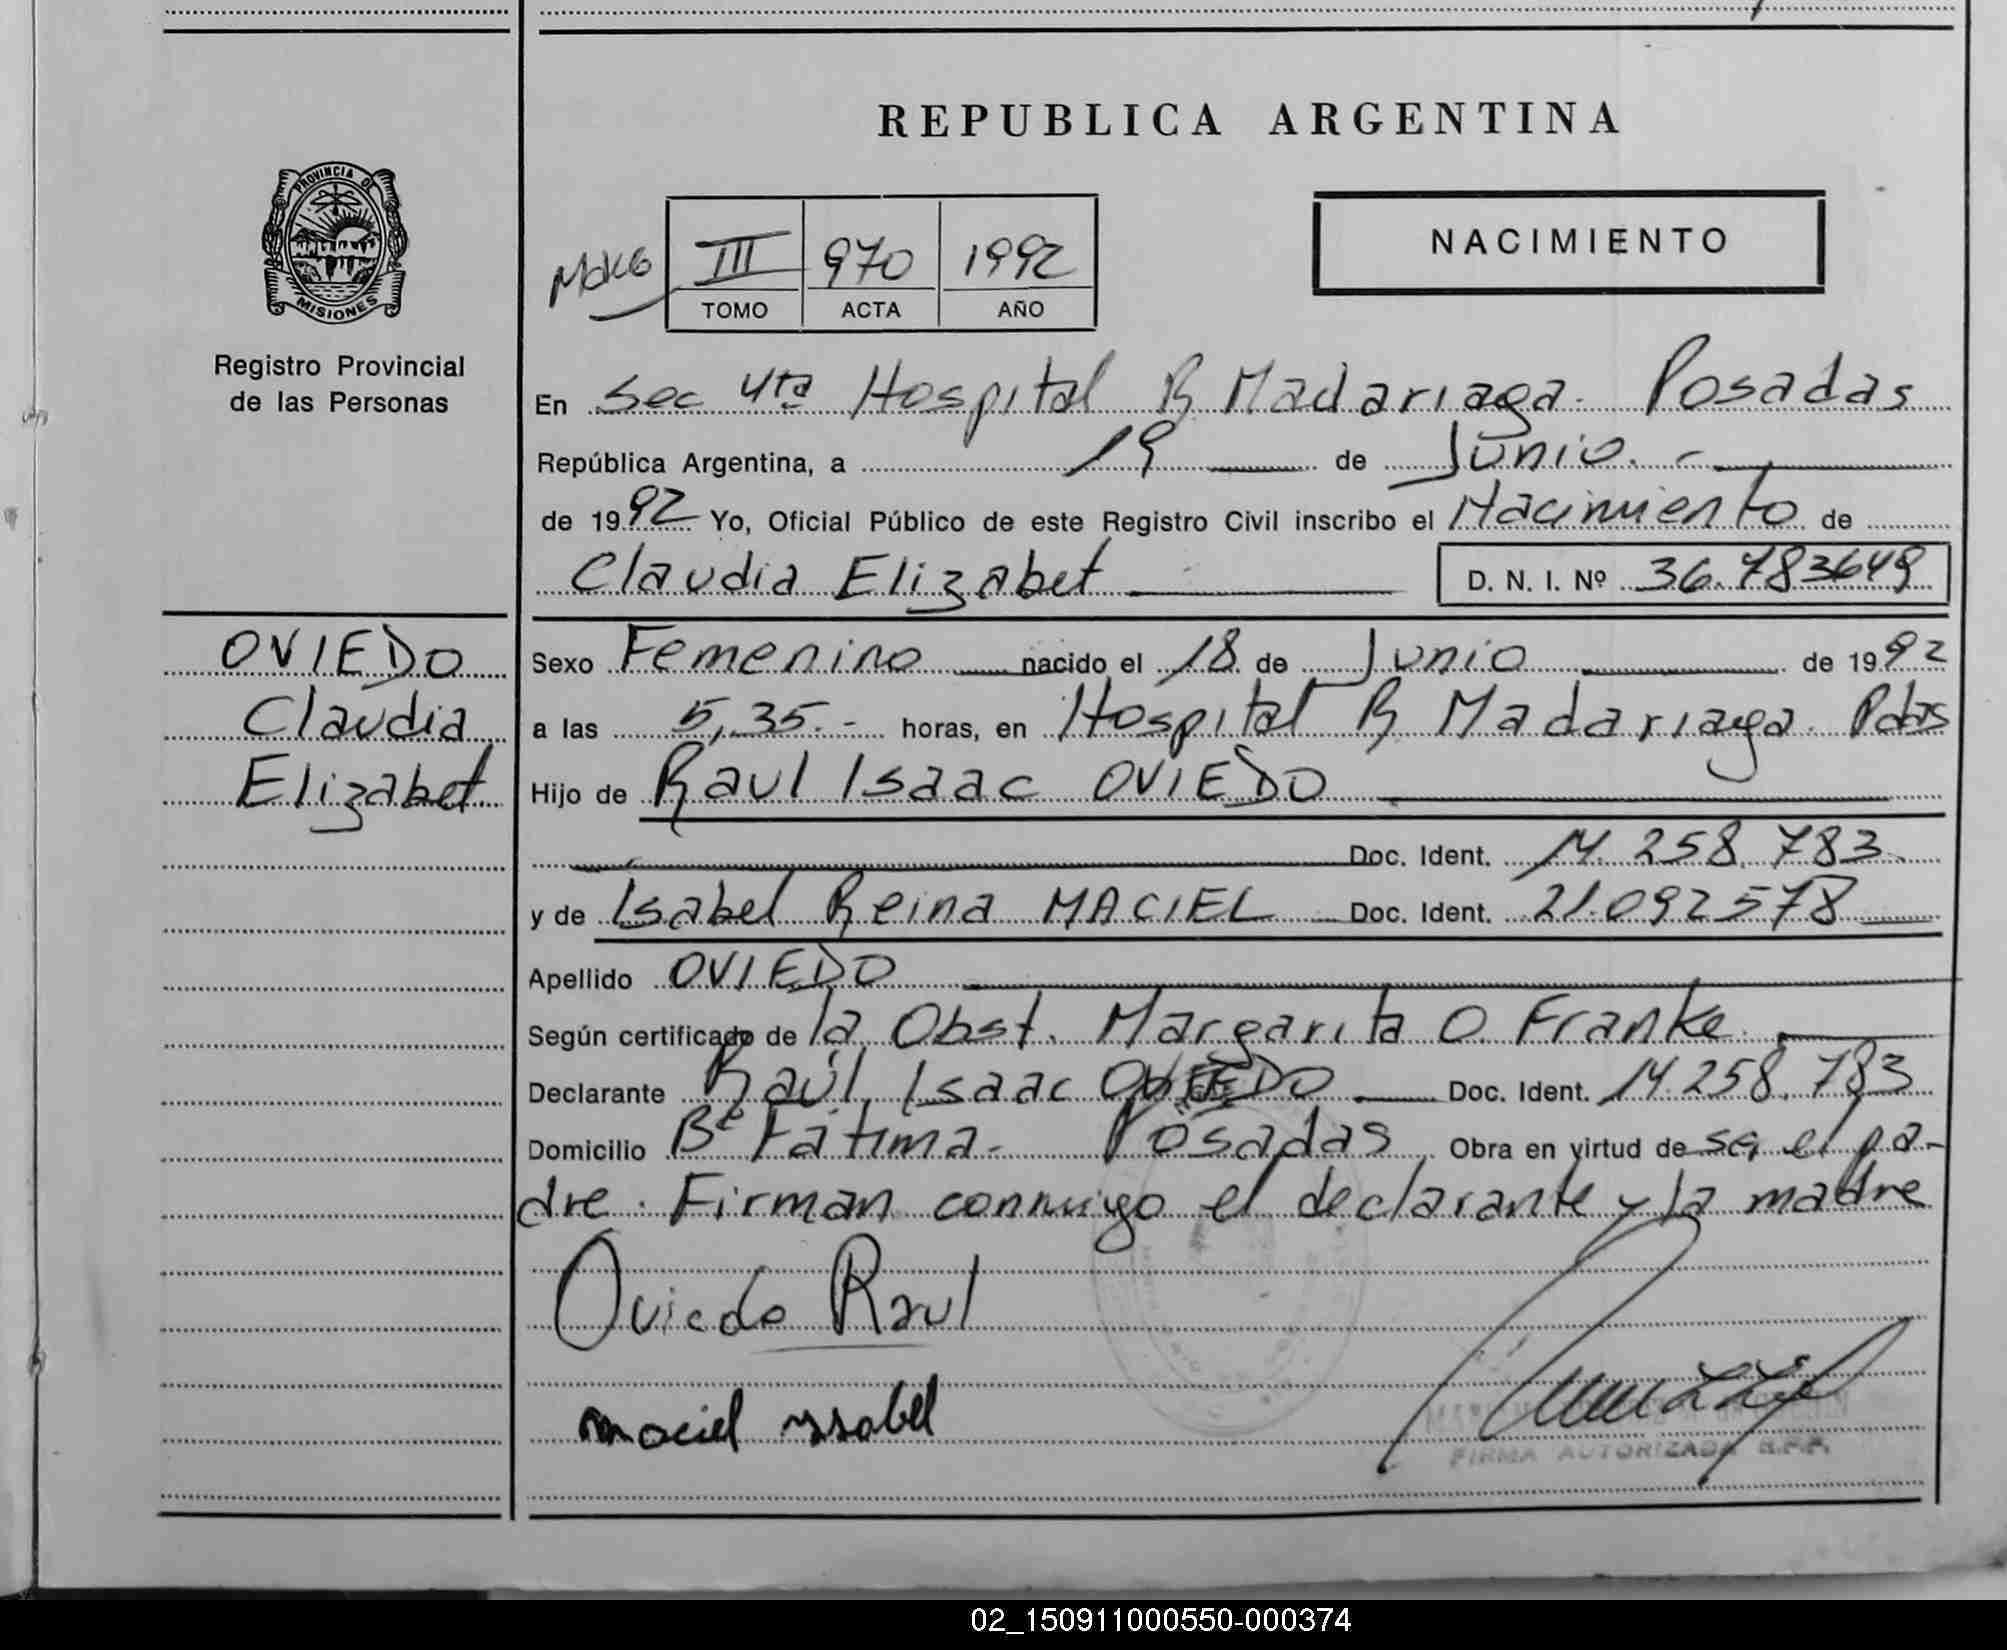 REPUBLICA ARGENTINA
PROVINCIA DE
MISIONES
Registro Provincial
de las Personas
III 970 1992
TOMO ACTA AÑO
NACIMIENTO
En Sec 4ta Hospital R Madariaga. Posadas
República Argentina, a 19 de Junio.-
de 1992 Yo, Oficial Público de este Registro Civil inscribo el Nacimiento de
Claudia Elizabet D. N. I. Nº 36.783649
OVIEDO
Claudia
Elizabet
Sexo Femenino nacido el 18 de Junio de 1992
a las 5,35.- horas, en Hospital R Madariaga. Pdas
Hijo de Raul Isaac OVIEDO
Doc. Ident. 14.258.783
y de Isabel Reina MACIEL Doc. Ident. 21.092578
Apellido OVIEDO
Según certificado de la Obst. Margarita O. Franke.
Declarante Raúl Isaac OVIEDO Doc. Ident. 14.258.783
Domicilio Bº Fátima- Posadas Obra en virtud de ser el pa-
dre. Firman conmigo el declarante y la madre
Oviedo Raul
maciel yssabel
FIRMA AUTORIZADA R.P.P.
02_150911000550-000374